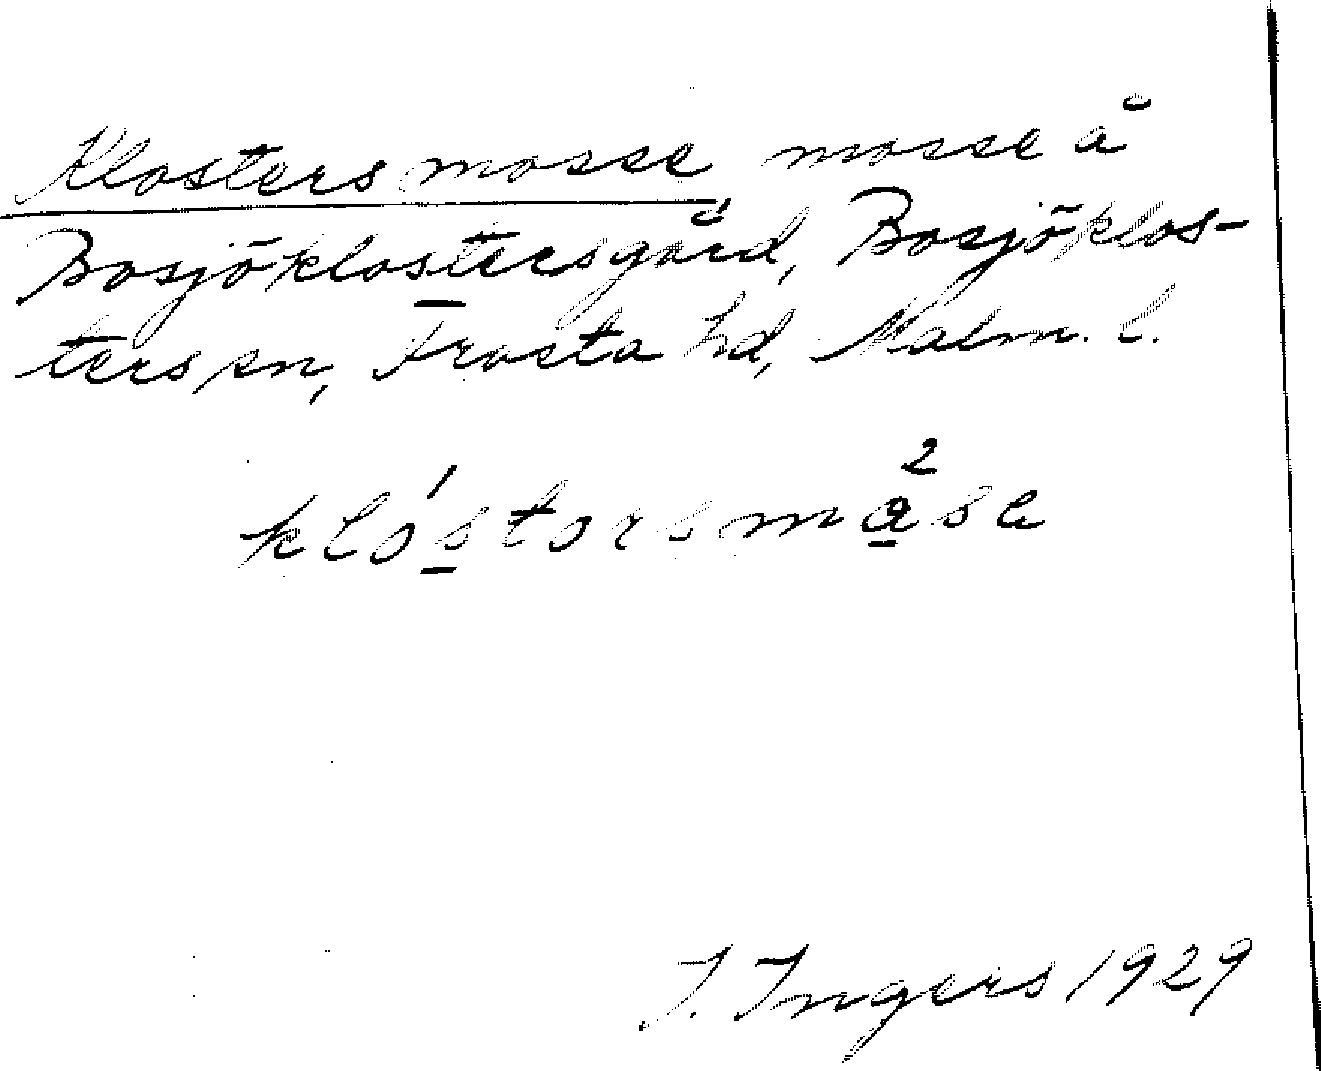 Klostersmosse mosse å
Bosjöklostersgård, Bosjöklos-
ters sn, Frosta hd, Malm. l.
klóstorsmåse
I. Ingers 1929